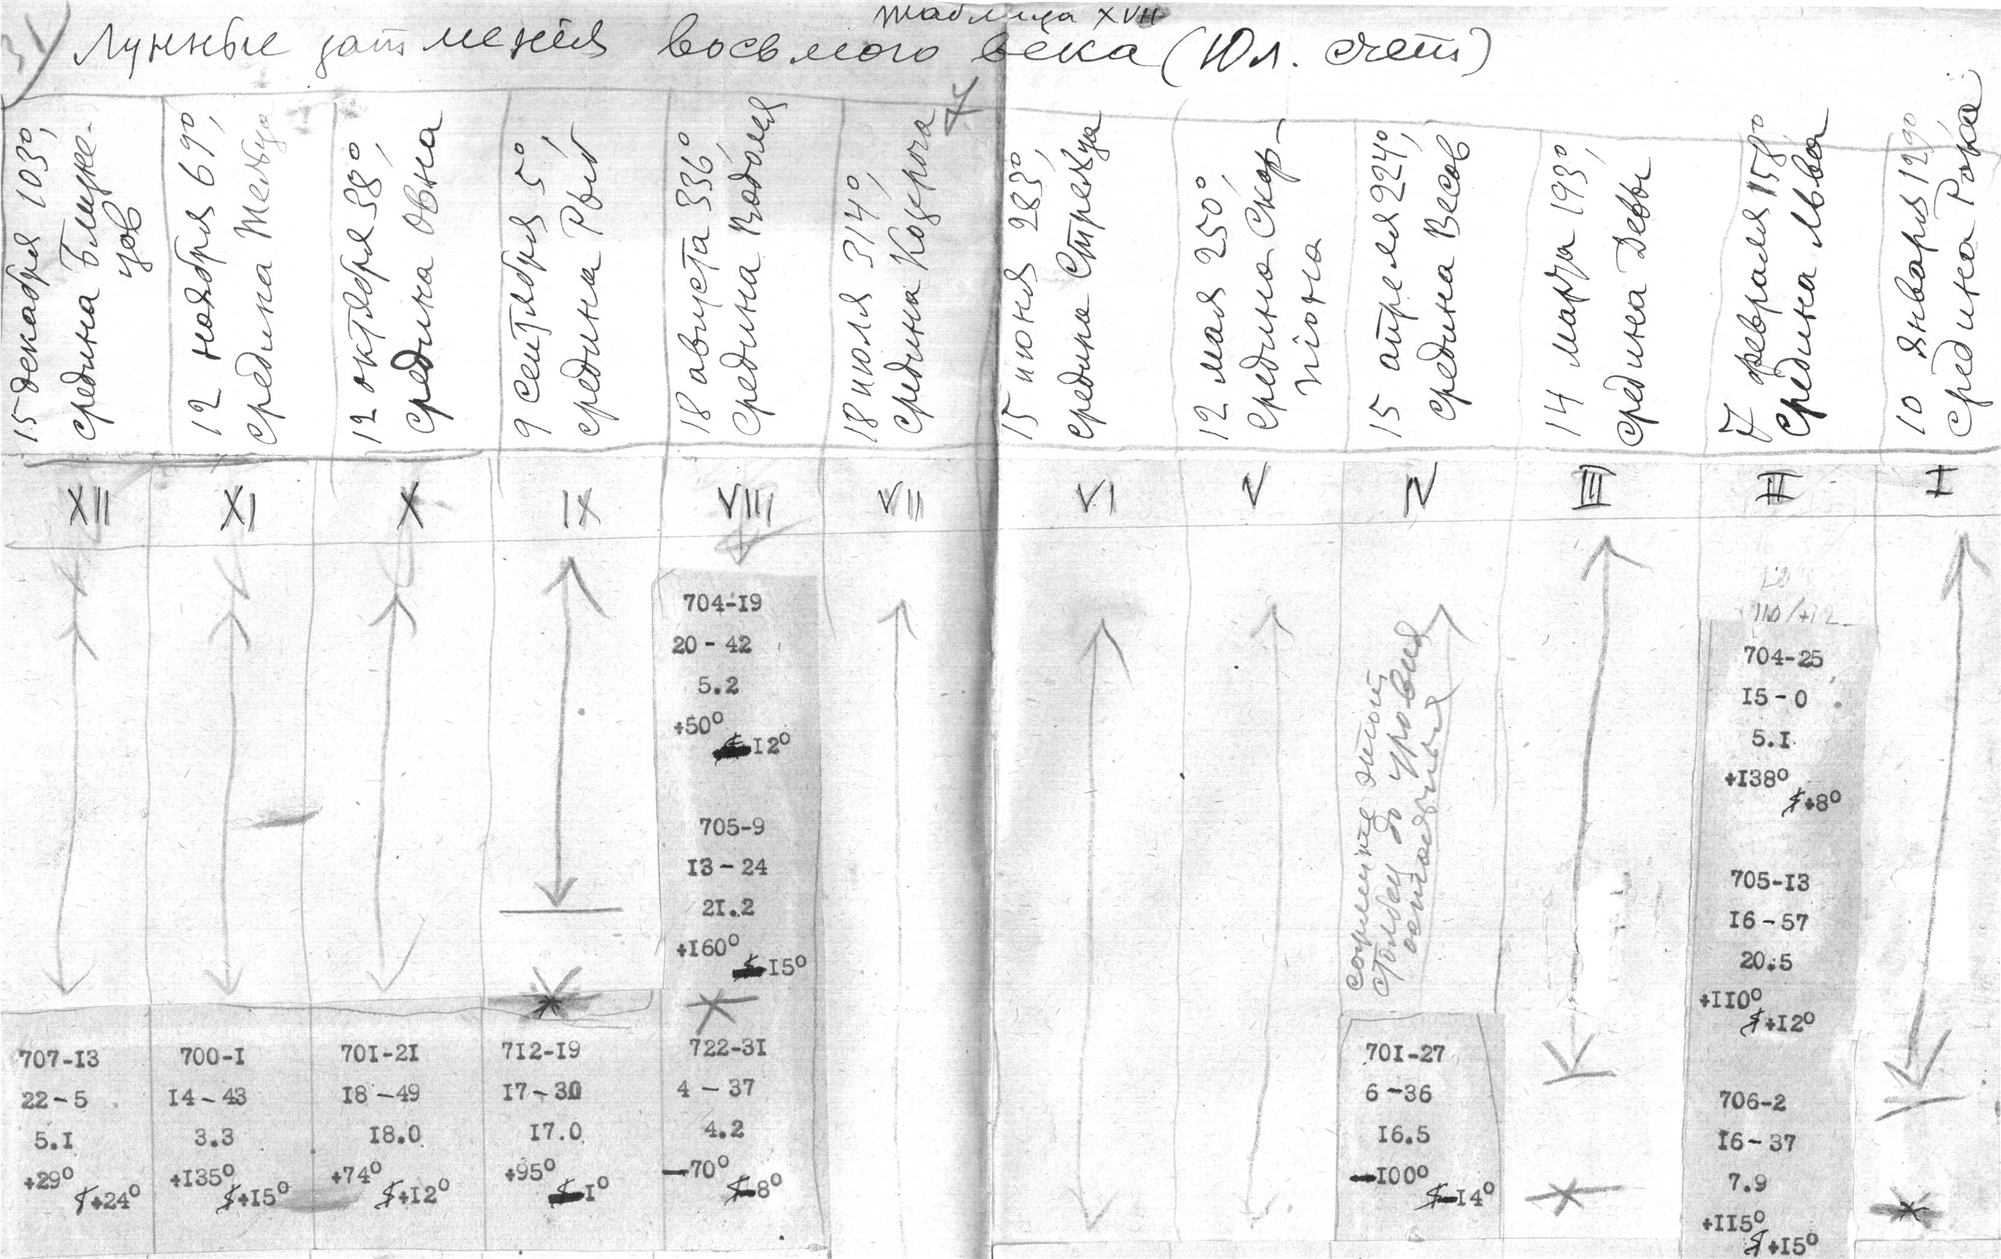 Таблица XVII
Лунные затмения восьмого века (Юл. счет)
15 декабря 103°,
средина Близне-
цов
12 ноября 69°,
средина Тельца
12 октября 38°,
средина Овна
9 сентября 5°,
средина Рыб
18 августа 336°,
средина Водолея
18 июля 314°,
средина Козерога
15 июня 283°,
средина Стрельца
12 мая 250°,
средина Скор-
піона
15 апреля 224°,
средина Весов
14 марта 193°,
средина Девы
7 февраля 158°
средина Льва
10 января 129°,
средина Рака
XII
XI
X
IX
VIII
VII
VI
V
IV
III
II
I
704-I9
20-42
5.2
+50°
I2°
705-9
I3-24
2I.2
+I60°
I5°
722-3I
4-37
4.2
-70°
-8°
707-I3
22-5
5.I
+29°
+24°
700-I
I4-43
3.3
+I35°
+I5°
70I-2I
I8-49
I8.0
+74°
+I2°
7I2-I9
I7-30
I7.0
+95°
I°
столбец до уровня
70I-27
6-36
I6.5
-I00°
-I4°
704-25
I5-0
5.I
+I38°
+8°
705-I3
I6-57
20.5
+II0°
+I2°
706-2
I6-37
7.9
+II5°
+I5°